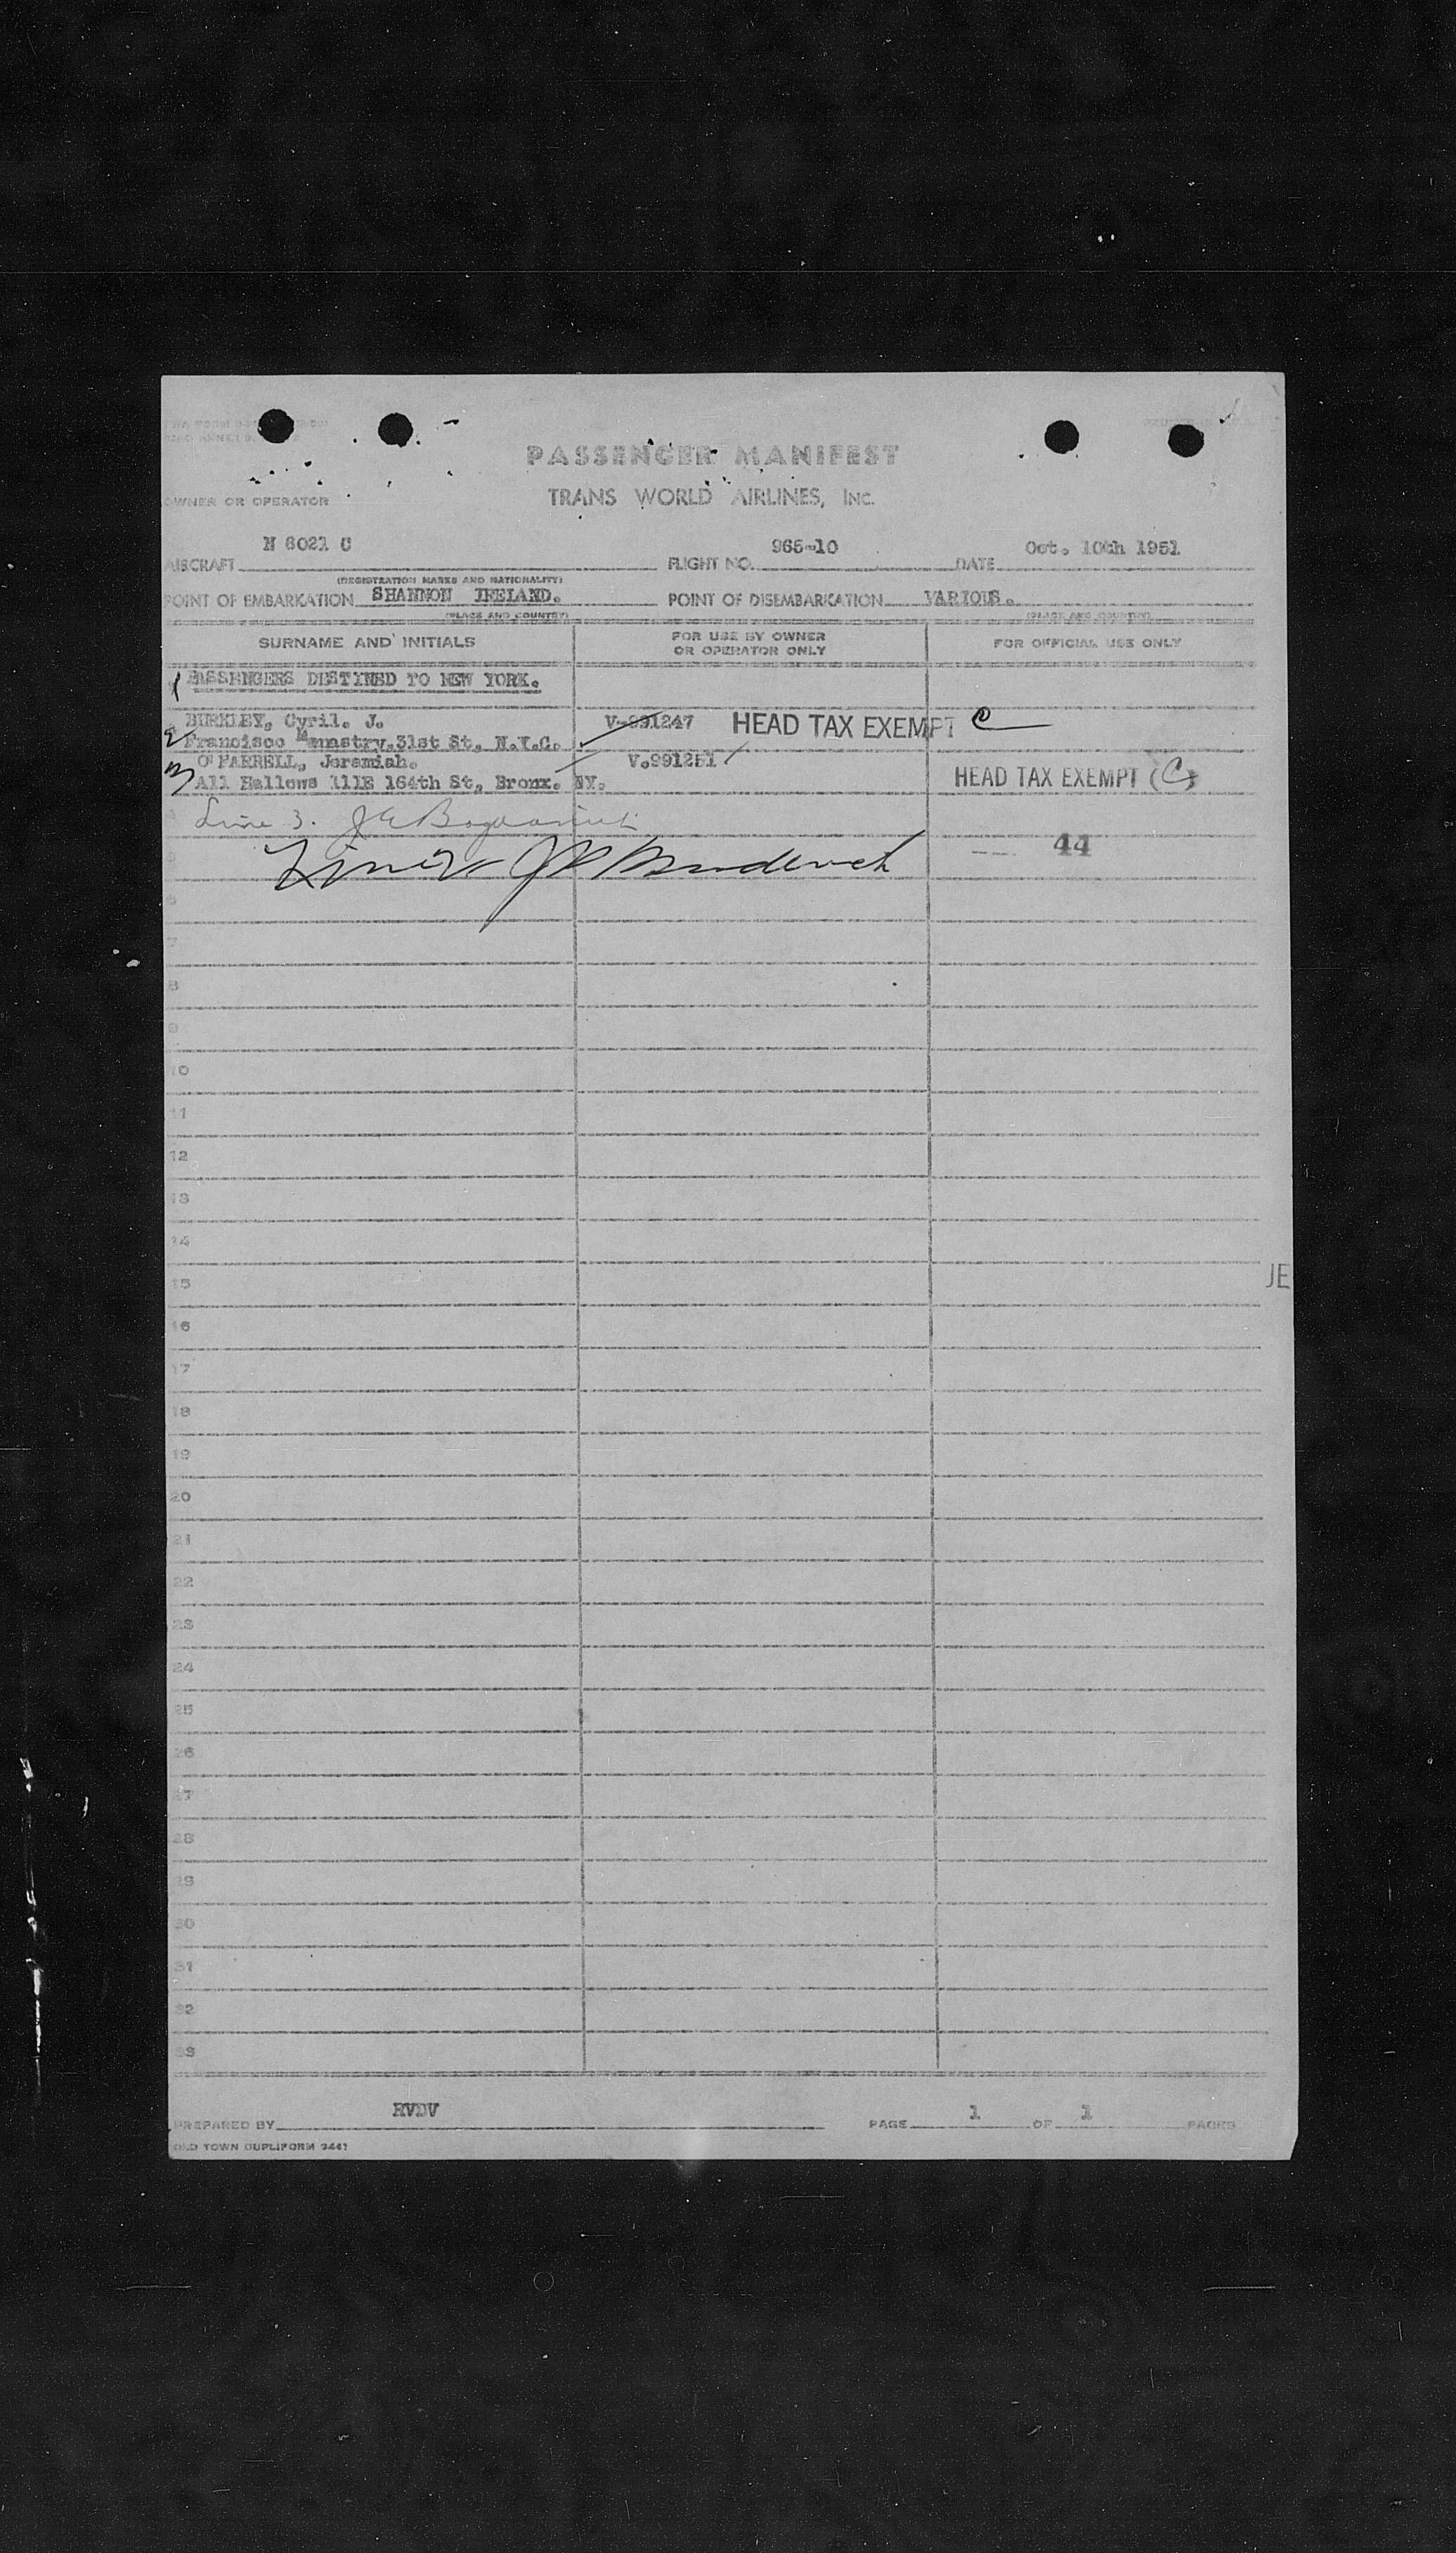 PASSENGER MANIFEST
OWNER OR OPERATOR TRANS WORLD AIRLINES, INC.
AIRCRAFT N 6021 C FLIGHT NO. 965-10 DATE Oct. 10th 1951
(REGISTRATION MARKS AND NATIONALITY)
POINT OF EMBARKATION SHANNON IRELAND. POINT OF DISEMBARKATION VARIOUS.
(PLACE AND COUNTRY) (PLACE AND COUNTRY)
SURNAME AND INITIALS FOR USE BY OWNER OR OPERATOR ONLY FOR OFFICIAL USE ONLY
1 PASSENGERS DESTINED TO NEW YORK.
BUCKLEY, Cyril. J. V-991247 HEAD TAX EXEMPT C
2 Francisco 31st St, N.Y.C.
O'FARRELL, Jeremiah. V.991251
3 All Hallows 111E 164th St, Bronx. NY. HEAD TAX EXEMPT (C)
4 Line 3.
5 Line 2 44
6
7
8
9
10
11
12
13
14
15
JE
16
17
18
19
20
21
22
23
24
25
26
27
28
29
30
31
32
33
PREPARED BY RVDV PAGE 1 OF 1 PAGES
OLD TOWN DUPLIFORM 3441